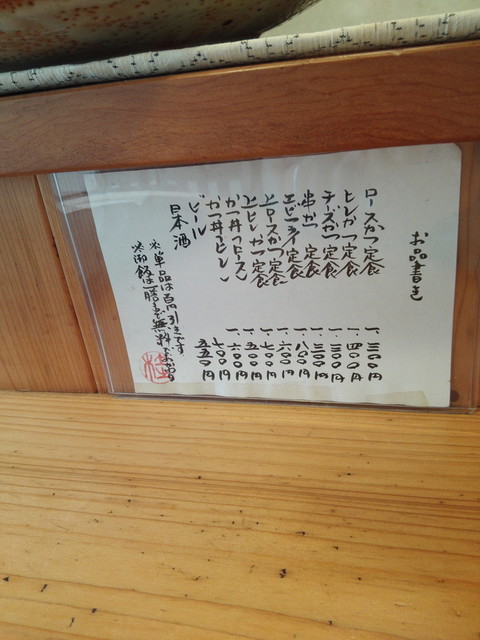 お品書き
ロースかつ定食 一、三〇〇円
ヒレかつ定食 一、四〇〇円
チーズかつ定食 一、三〇〇円
串かつ定食 一、三〇〇円
エビフライ定食 一、八〇〇円
上ロースかつ定食 一、六〇〇円
上ヒレかつ定食 一、七〇〇円
かつ丼(ロース) 一、五〇〇円
かつ丼(ヒレ) 一、六〇〇円
ビール 七〇〇円
日本酒 五五〇円
※単品は百円引きです
※御飯は一膳まで無料
桂